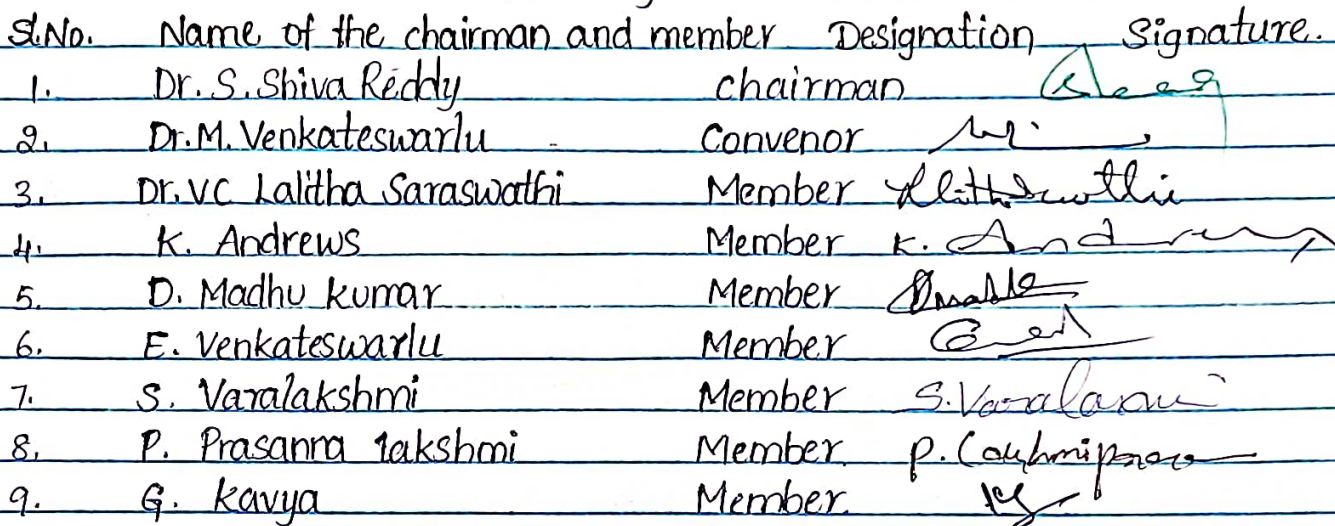 Sl.No. Name of the chairman and member Designation Signature.
1. Dr. S. Shiva Reddy chairman
2. Dr. M. Venkateswarlu Convenor
3. Dr. VC Lalitha Saraswathi Member
4. K. Andrews Member K. Andrews
5. D. Madhu kumar Member
6. E. Venkateswarlu Member
7. S. Varalakshmi Member S. Varalaxmi
8. P. Prasanna lakshmi Member P. Lakshmi
9. G. kavya Member